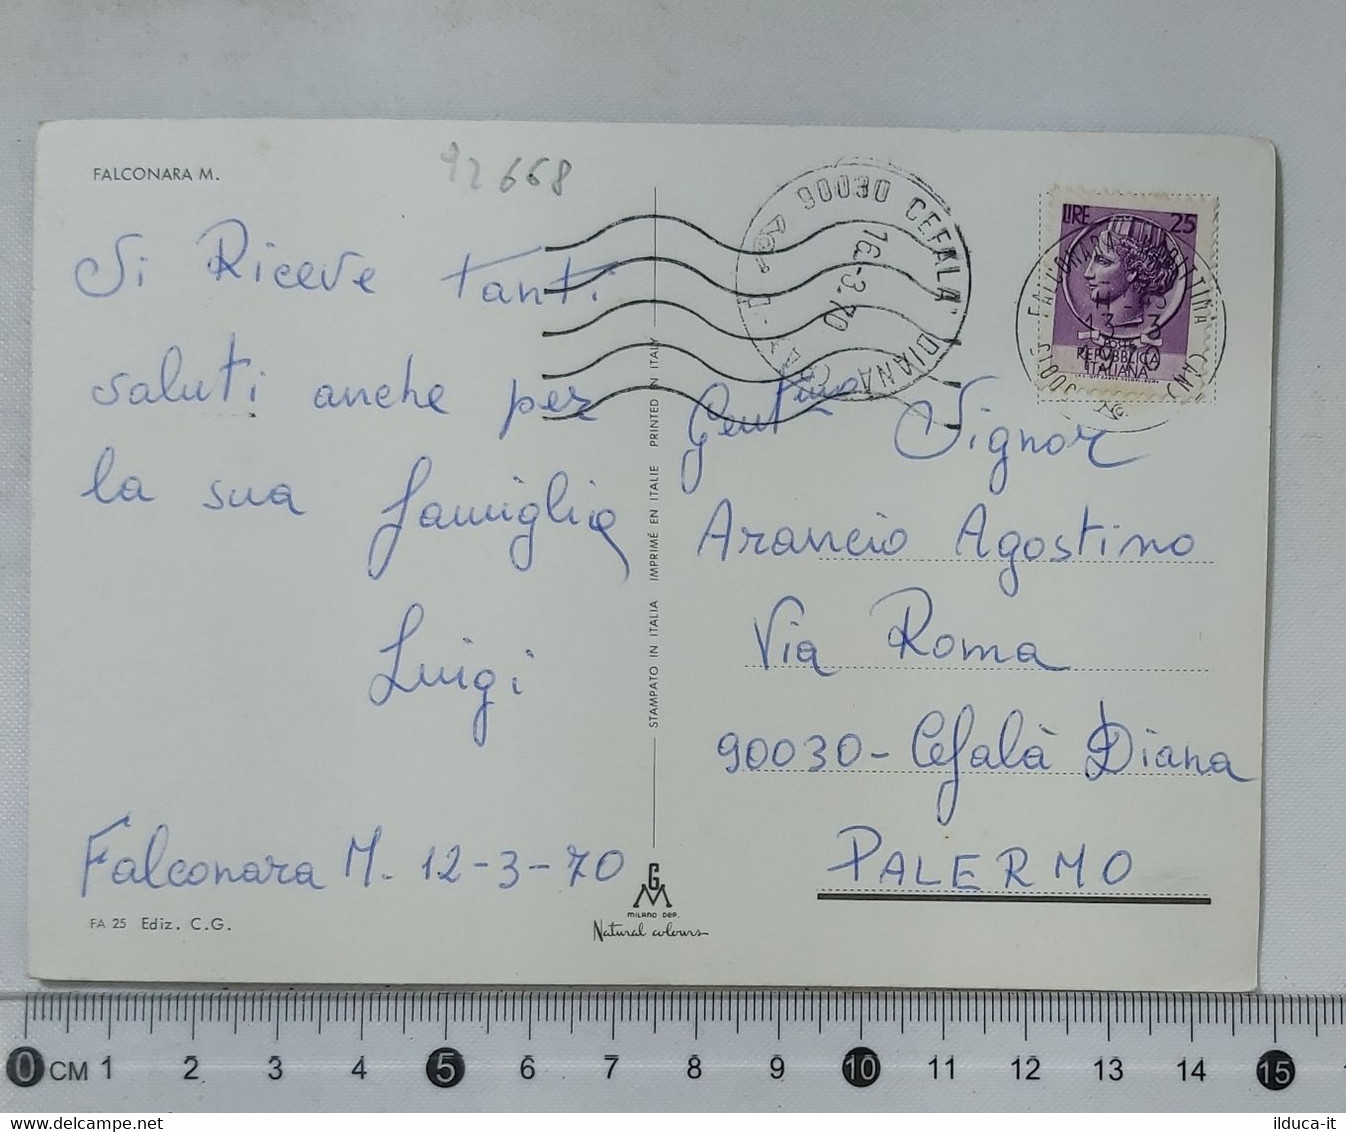 FALCONARA M.
92668
Si Riceve tanti
saluti anche per
la sua famiglia
Luigi
Falconara M. 12-3-70
FA 25 Ediz. C.G.
STAMPATO IN ITALIA IMPRIMÉ EN ITALIE PRINTED IN ITALY
GM
MILANO DEP.
Natural colours
90030 CEFALA' DIANA
16.-3.70
LIRE 25
POSTE
REPVBBLICA
ITALIANA
FALCONARA MARITTIMA
13-3
Gent.mo Signor
Arancio Agostino
Via Roma
90030- Cefalà Diana
PALERMO
0 CM 1 2 3 4 5 6 7 8 9 10 11 12 13 14 15
ilduca-it